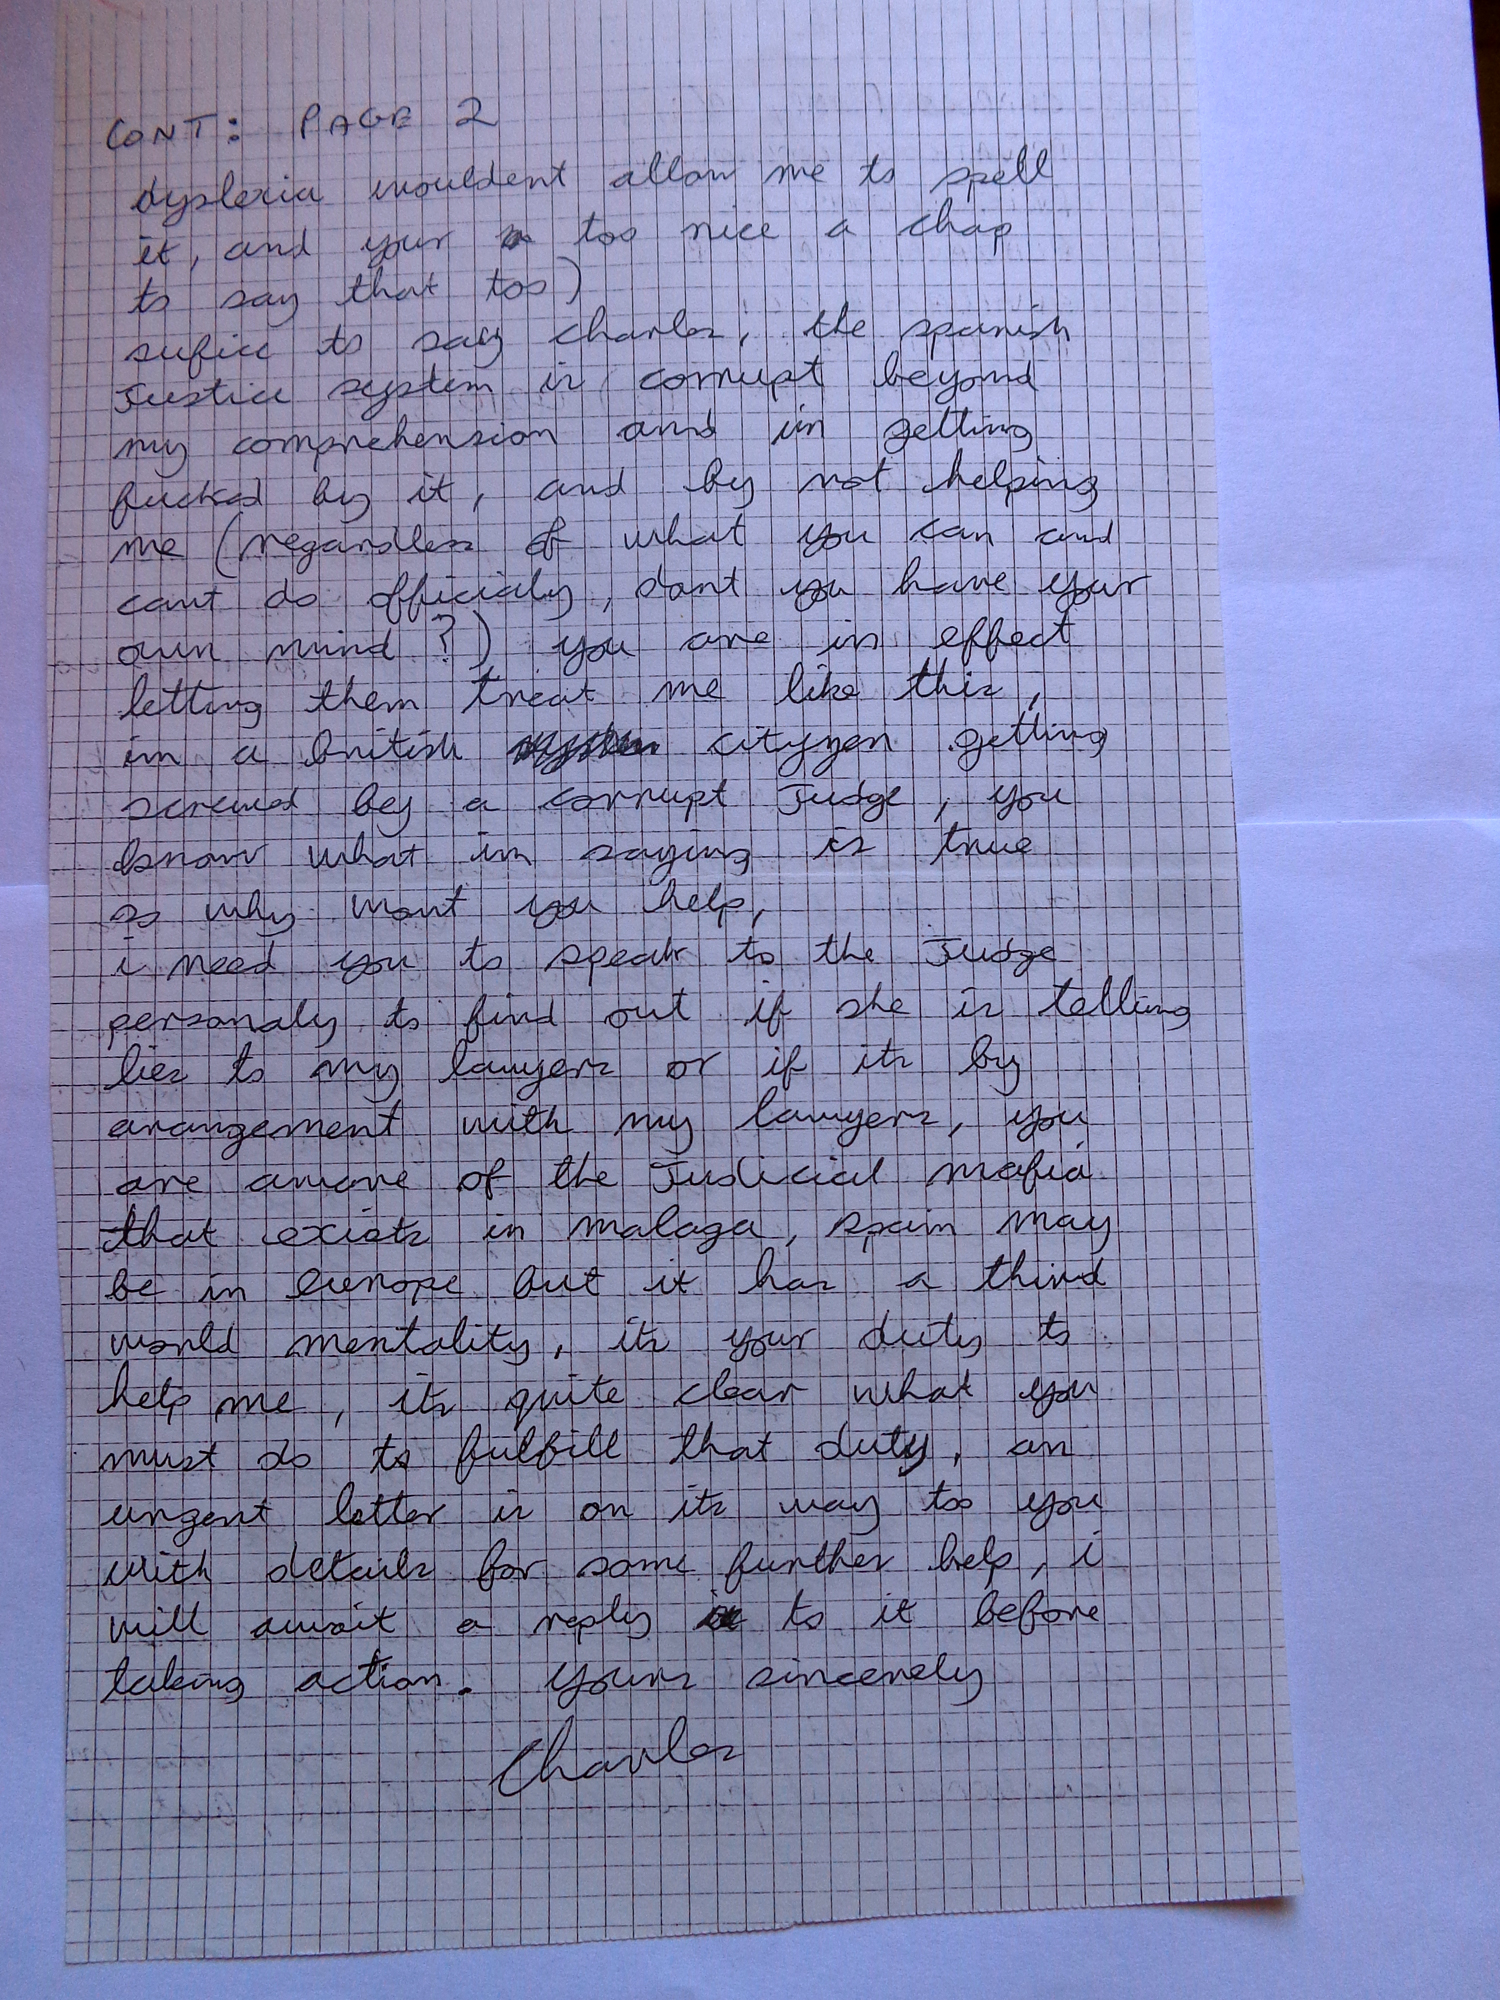 CONT: PAGE 2
dyslexia wouldent allow me to spell
it, and your too nice a chap
to say that too)
sufice to say charles, the spanish
Justice system is corrupt beyond
my comprehension and im getting
fucked by it, and by not helping
me (regardless of what you can and
cant do officialy, dont you have your
own mind?) you are in effect
letting them treat me like this,
im a british cityzen getting
screwed bey a corrupt Judge, you
know what im saying is true
so why wont you help,
i need you to speak to the Judge
personaly to find out if she is telling
lies to my lawyers or if its by
arangement with my lawyers, you
are aware of the Judicial mafia
that exists in malaga, spain may
be in europe but it has a third
world mentality, its your duty to
help me, its quite clear what you
must do to fulfill that duty, an
urgent letter is on its way too you
with details for some further help, i
will await a reply to it before
taking action. yours sincerely
Charles